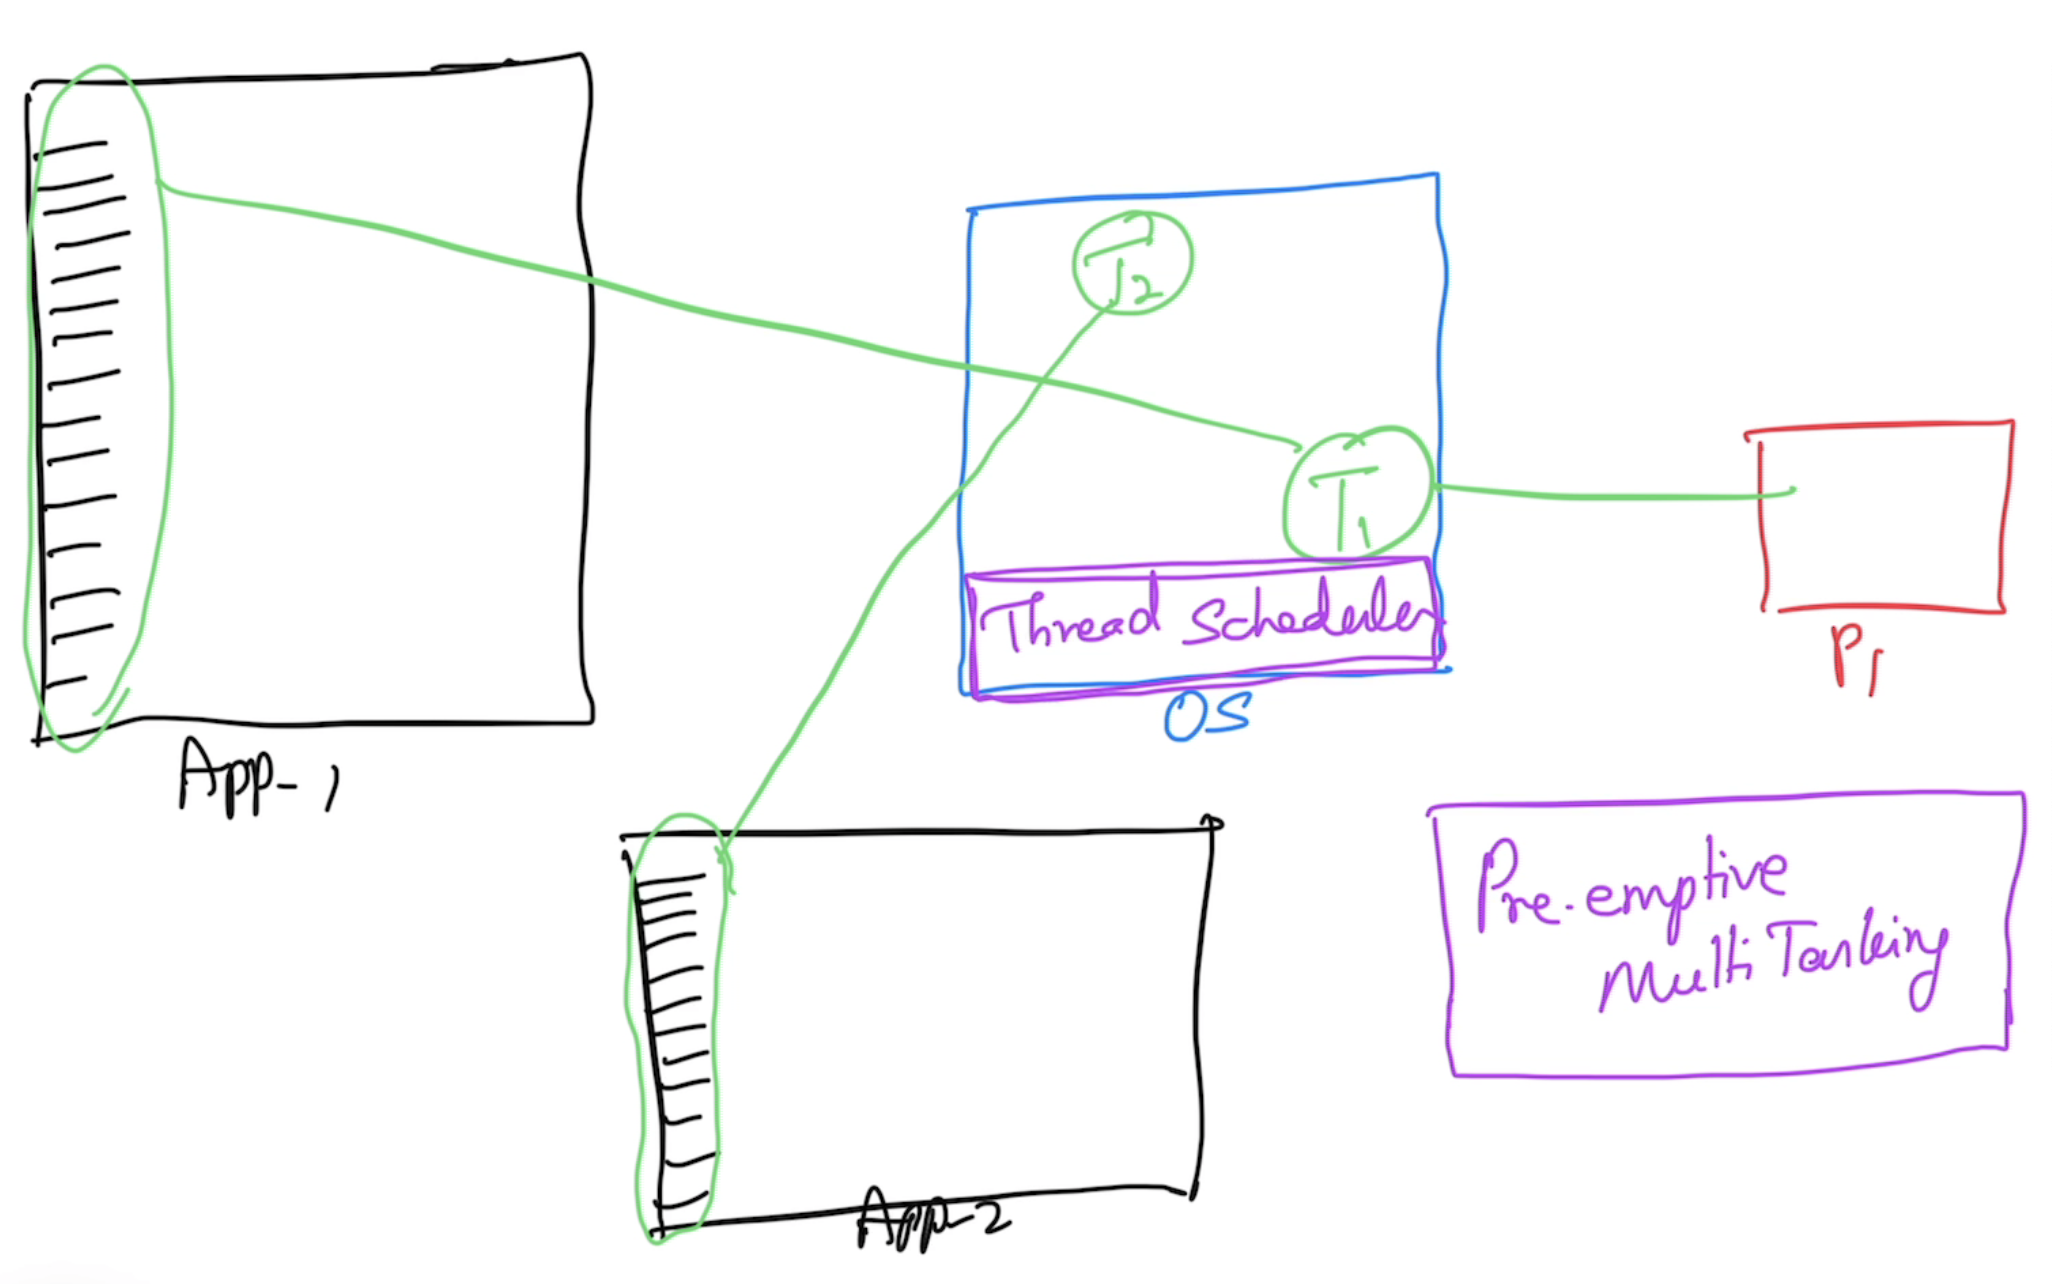 T2
T1
Thread Scheduler
OS
P1
App-1
Pre-emptive
Multi Tasking
App-2